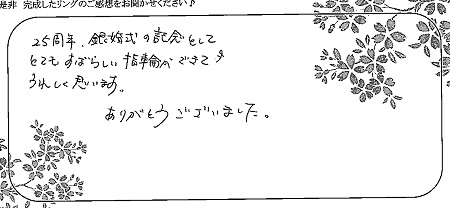 是非 完成したリングのご感想をお聞かせください♪
25周年、銀婚式の記念として
とてもすばらしい指輪ができて
うれしく思います。
ありがとうございました。